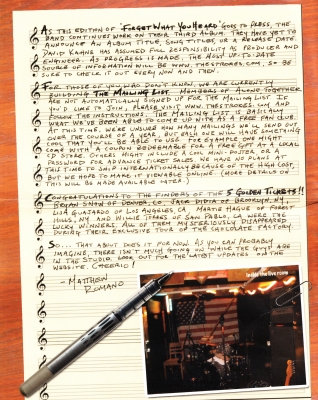 As this edition of 'Forget What You Heard' goes to press, the
band continues work on their third album. They have yet to
announce an album title, song titles or a release date.
David Kahne has assumed full responsibility as producer and
engineer. As progress is made, the most up-to-date
source of information will be www.thestrokes.com, so be
sure to check it out every now and then.
For those of you who don't know, we are currently
building The Mailing List. Members of Alone, Together
are not automatically signed up for the mailing list. If
you'd like to join, please visit www.thestrokes.com and
follow the instructions. The mailing list is basically
what we've been able to come up with as a free fan club.
At this time, we're unsure how many mailings we'll send out
over the course of a year. But each one will have something
cool that you'll be able to use. For example one might
come with a coupon redeemable for a free gift at a local
CD store. Others might include a cool mini-poster or a
password for advance ticket sales. We have no plans at
this time to ship internationally because of the high cost,
but we hope to make it viewable online. (More details on
this will be made available later.)
Congratulations to the finders of the 5 Golden Tickets!!
Bryan Shaw of Denver, CO, Jack Didia of Brooklyn NY,
Lisa Guajardo of Los Angeles CA, Martie Hague of Forest
Hills, NY and Willie Jaimes of San Pablo, CA were the
lucky winners. All of them mysteriously disappeared
during their exclusive tour of the chocolate factory.
So... that about does it for now. As you can probably
imagine, there isn't much going on while the guys are
in the studio. Look out for the latest updates on the
website. Cheerio!
- Matthew
Romano